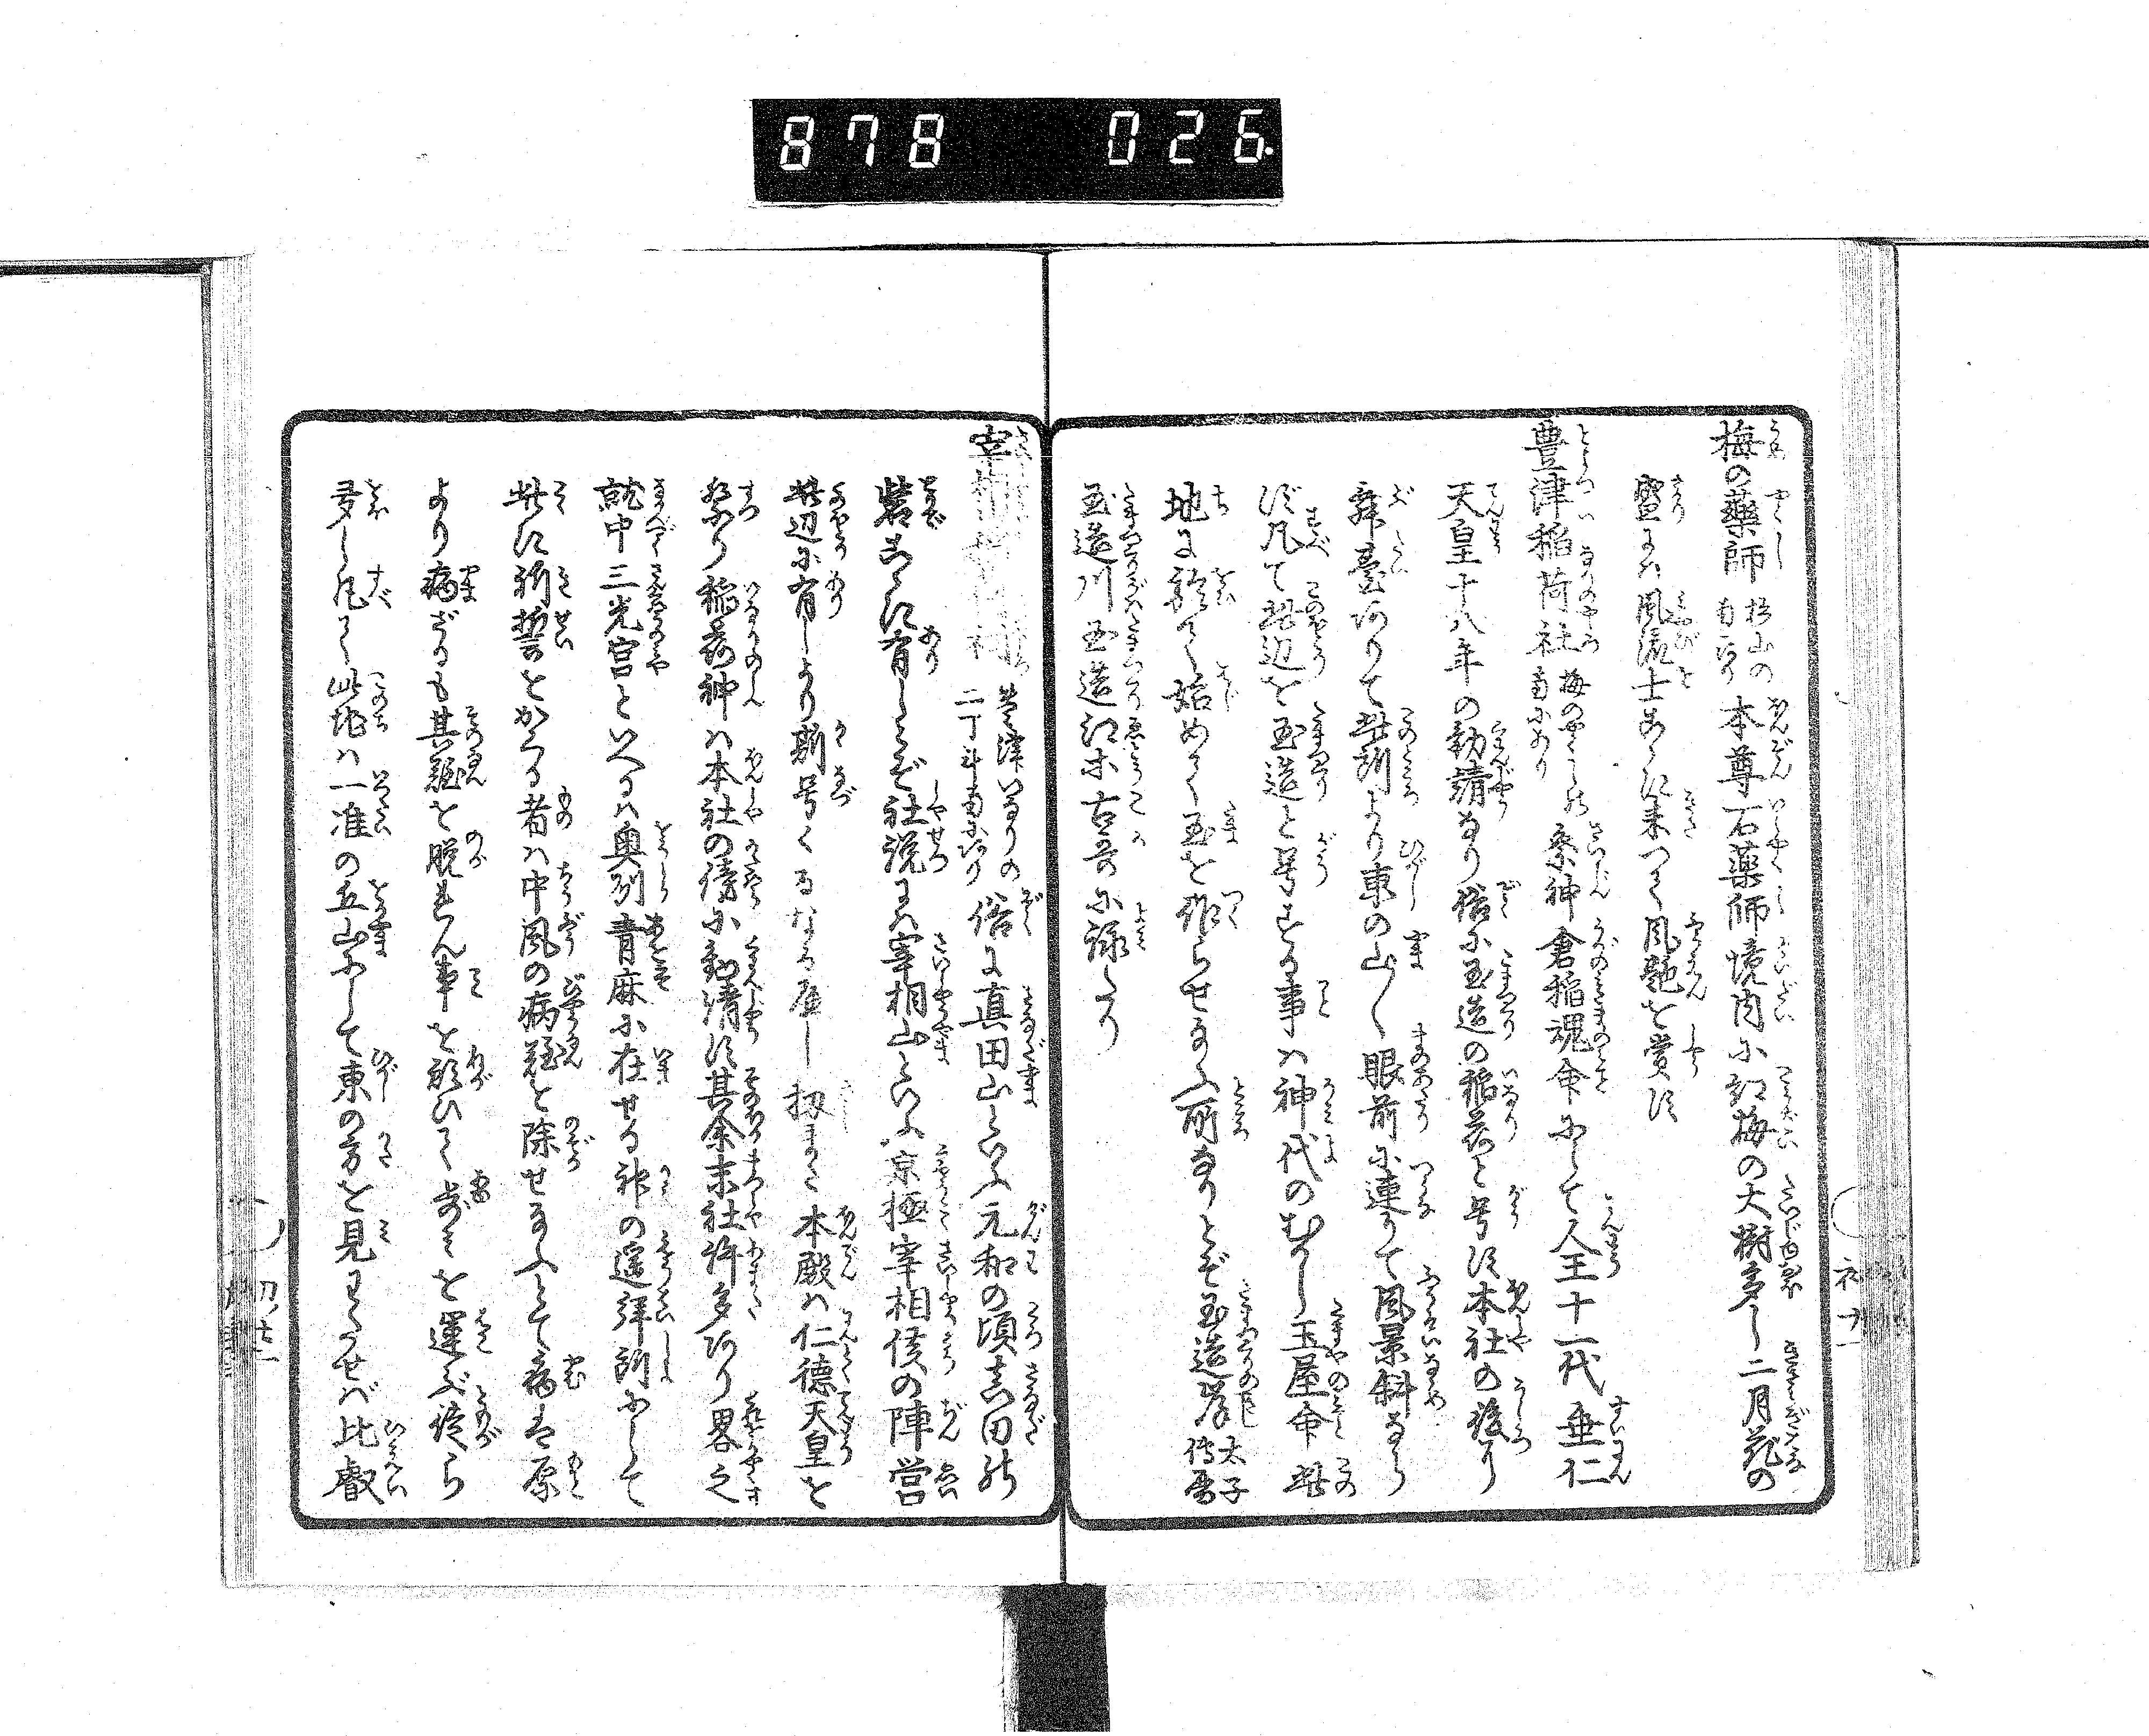 878 026.
梅の薬師 杉山の南にあり 本尊石薬師境内に紅梅の大樹多し二月花の
盛には風流士あまた来つて風艶を賞す
豊津稲荷社 梅のやくしの南にあり 祭神倉稲魂命にして人王十一代垂仁
天皇十八年の勧請なり俗に玉造の稲荷と号す本社の後り
舞臺ありて此所より東の山〻眼前に連りて風景斜なら
ず凡て此辺を玉造と号する事は神代のむかし玉屋命此
地に於て始めて玉を作らせ給ふ所なりとぞ玉造岸 太子傳暦
玉造川玉造江等古哥に詠たり
宰相 豊津いなりの二丁斗南にあり 俗に真田山といふ元和の頃真田の
砦こゝに有しとぞ社説には宰相山といふ京極宰相侯の陣営
此辺に有しより斯号くるなるべし扨また本殿は仁徳天皇を
祭り稲荷神は本社の傍に勧請す其余末社許多あり畧之
就中三光宮といへるは奥州青麻に在せる神の遥拝所にして
此に祈誓をかくる者は中風の病難を除せ給ふとて病を原
より病ざるも其難を脱れん事を願ひて歩みを運ぶ徒ら
多し凡て此地は一准の丘山にして東の方を見わたせば比叡